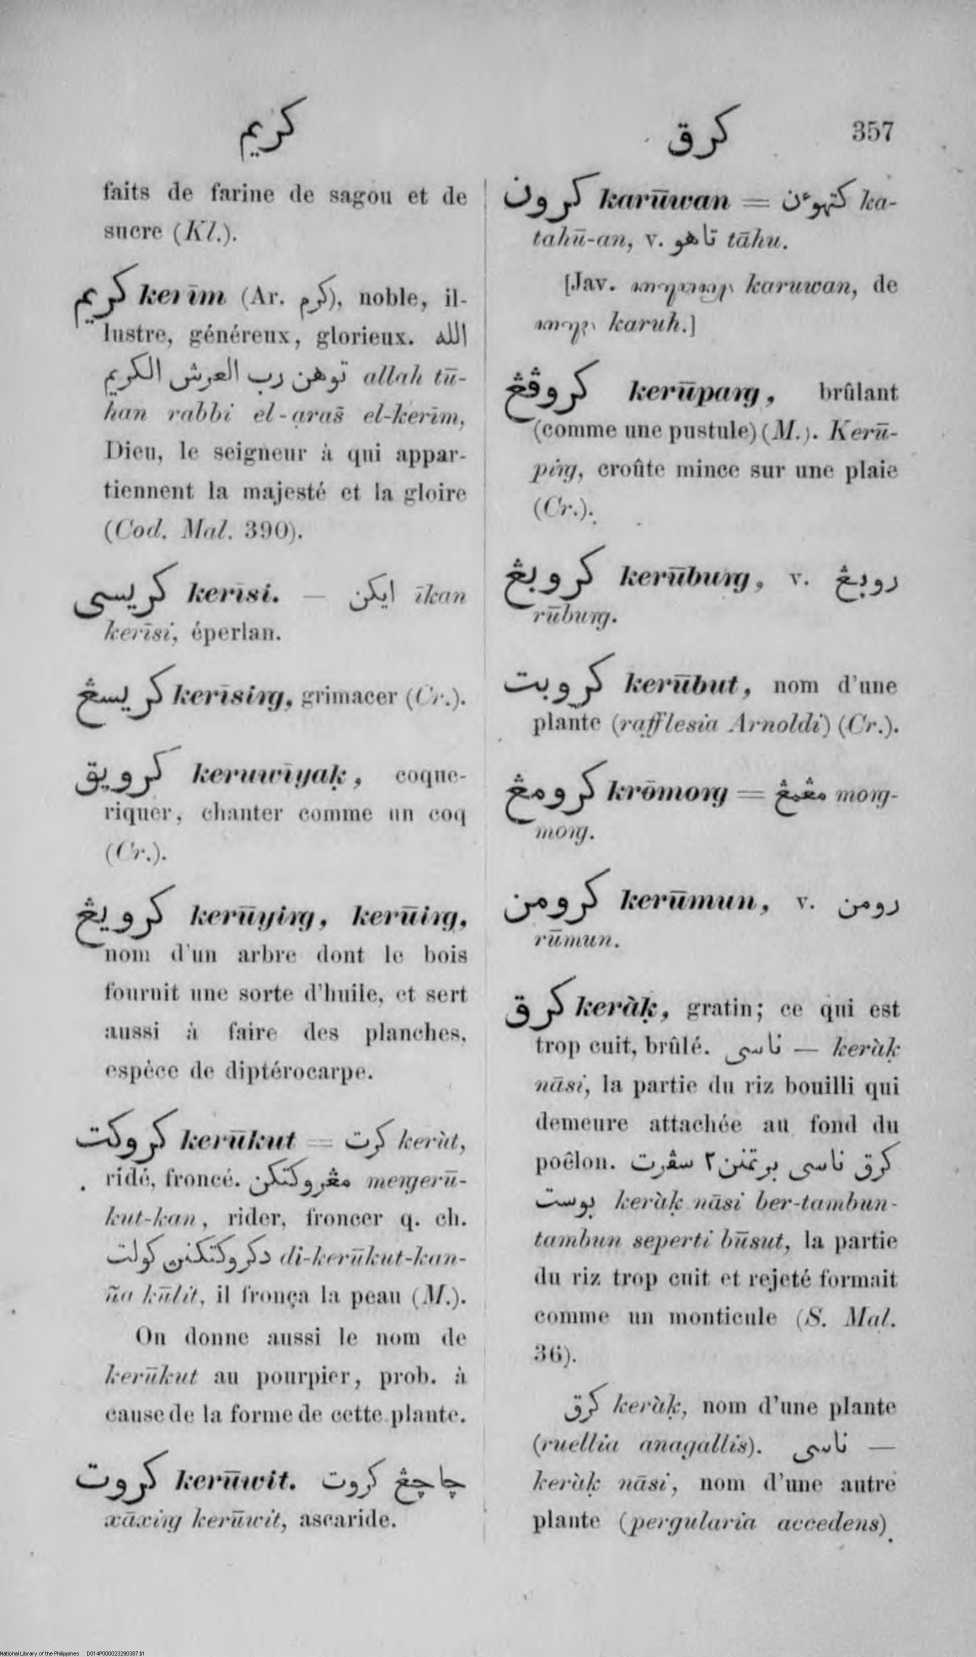 كريم
كرق 357
faits de farine de sagou et de
sucre (Kl.).
كريم kerīm (Ar. كرم), noble, il-
lustre, généreux, glorieux. الله
توهن رب العرش الكريم allah tū-
han rabbi el-aras̄ el-kerīm,
Dieu, le seigneur à qui appar-
tiennent la majesté et la gloire
(Cod. Mal. 390).
كريسى kerīsi. — ايكن īkan
kerīsi, éperlan.
كريسڠ kerīsiṇg, grimacer (Cr.).
كرويق keruwīyaḳ, coque-
riquer, chanter comme un coq
(Cr.).
كرويڠ kerūyiṇg, kerūiṇg,
nom d'un arbre dont le bois
fournit une sorte d'huile, et sert
aussi à faire des planches,
espèce de diptérocarpe.
كروكت kerūkut = كرت keràt,
ridé, froncé. مڠروكتكن meṇgerū-
kut-kan, rider, froncer q. ch.
دكروكتكنن كولت di-kerūkut-kan-
ña kūlit, il fronça la peau (M.).
On donne aussi le nom de
kerūkut au pourpier, prob. à
cause de la forme de cette plante.
كروت kerūwit. چاچڠ كروت
xāxiṇg kerūwit, ascaride.
كرون karūwan = كتهوءن ka-
tahū-an, v. تاهو tāhu.
[Jav. karuwan, de
karuh.]
كروڤڠ kerūpaṇg, brûlant
(comme une pustule) (M.). Kerū-
pìṇg, croûte mince sur une plaie
(Cr.).
كروبڠ kerūbuṇg, v. روبڠ
rūbuṇg.
كروبت kerūbut, nom d'une
plante (rafflesia Arnoldi) (Cr.).
كرومڠ krōmoṇg = مڠمڠ moṇg-
moṇg.
كرومن kerūmun, v. رومن
rūmun.
كرق keràḳ, gratin; ce qui est
trop cuit, brûlé. ناسى — keràḳ
nāsi, la partie du riz bouilli qui
demeure attachée au fond du
poêlon. كرق ناسى برتمنن٢ سڤرت
بوست keràḳ nāsi ber-tambun-
tambun seperti būsut, la partie
du riz trop cuit et rejeté formait
comme un monticule (S. Mal.
36).
كرق keràḳ, nom d'une plante
(ruellia anagallis). ناسى —
keràḳ nāsi, nom d'une autre
plante (pergularia accedens).
National Library of the Philippines